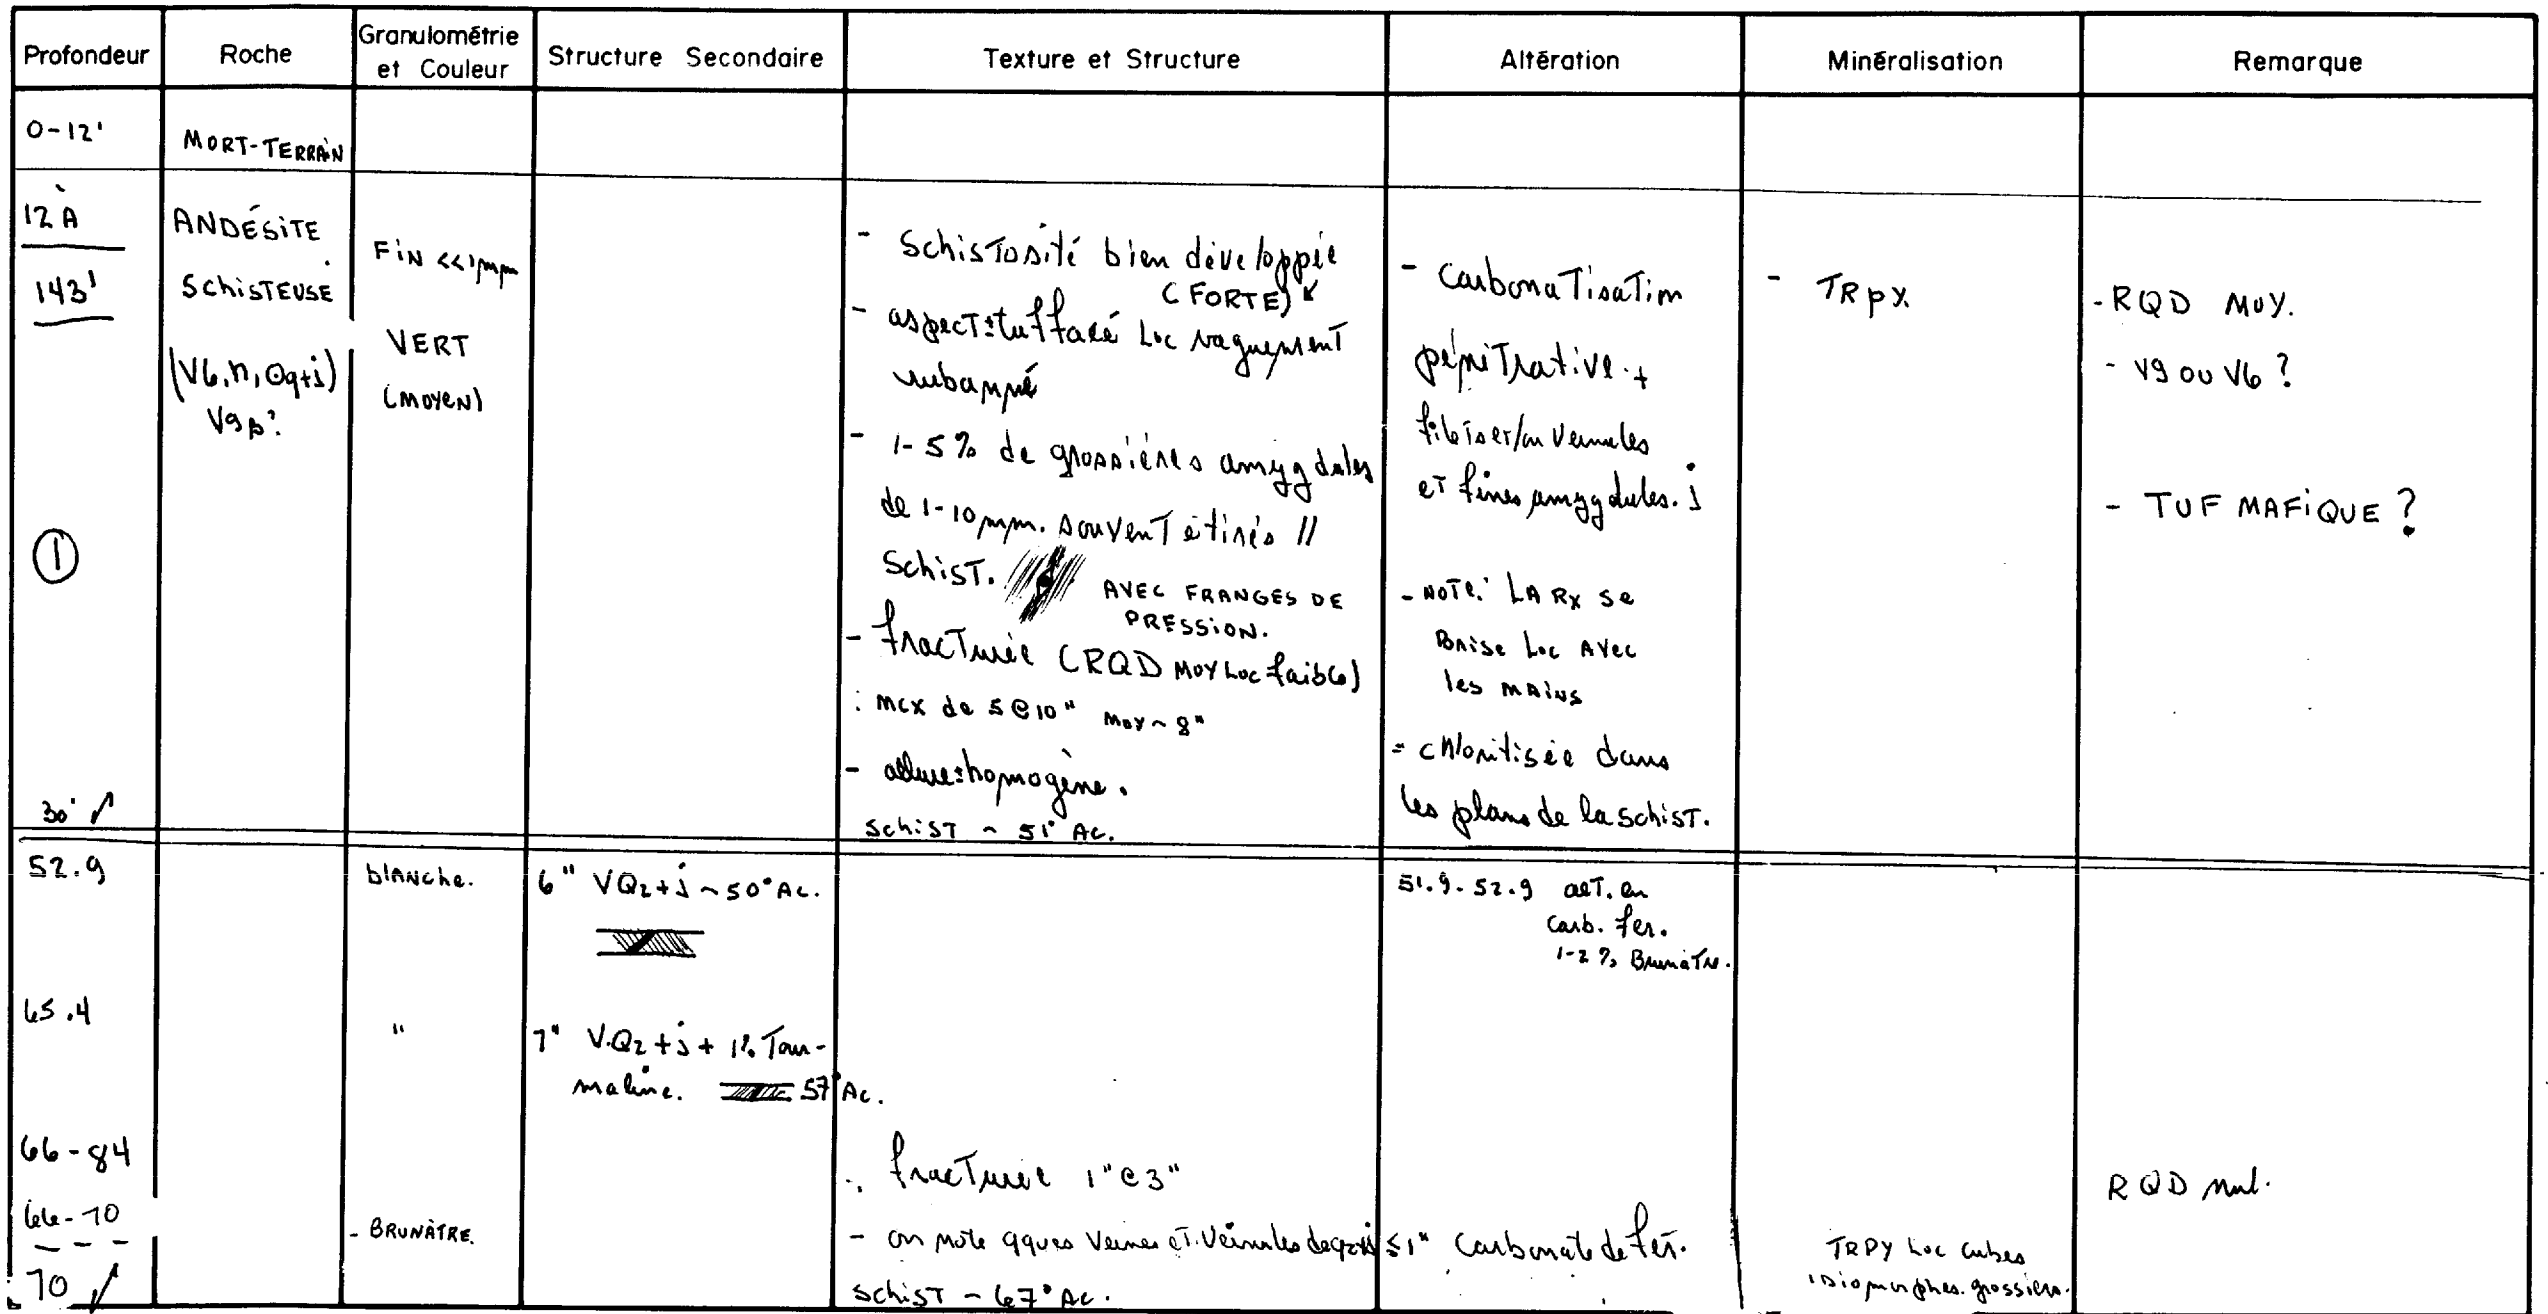 Profondeur
Roche
Granulométrie
et Couleur
Structure Secondaire
Texture et Structure
Altération
Minéralisation
Remarque
0-12'
MORT-TERRAIN
12 À
143'
①
30' ✓
ANDÉSITE
SCHISTEUSE
(V6,n,Oq+j)
V9B?
FIN <<1mm
VERT
(MOYEN)
- Schistosité bien développée
(FORTE)
- aspect ± tuffacé Loc vaguement
rubanné
- 1-5% de grossières amygdules
de 1-10 mm. souvent étirés //
Schist.
AVEC FRANGES DE
PRESSION.
- fracturée (RQD MOY Loc faible)
: mcx de 5@10" MOY ~ 8"
- allure ± homogène.
schist ~ 51° Ac.
- Carbonatisation
pénétrative +
et fines amygdules. j
- NOTE: LA Rx se
Brise Loc Avec
les mains
- chloritisée dans
les plans de la schist.
- TRpy.
- RQD MOY.
- V9 ou V6 ?
- TUF MAFIQUE ?
52.9
blanche.
6" VQz+j ~50° Ac.
51.9-52.9 alt. en
carb. fer.
1-2% Brunatre.
65.4
"
7" V.Qz+j + 1% Tour-
maline. 57° Ac.
66-84
fracturée 1"@3"
RQD nul.
66-70
- BRUNÂTRE.
- on note qques Veines et Veinules de qz+j ≤1" Carbonate de fer.
TRPY Loc cubes
idiomorphes grossiers.
70 ✓
schist ~ 67° Ac.